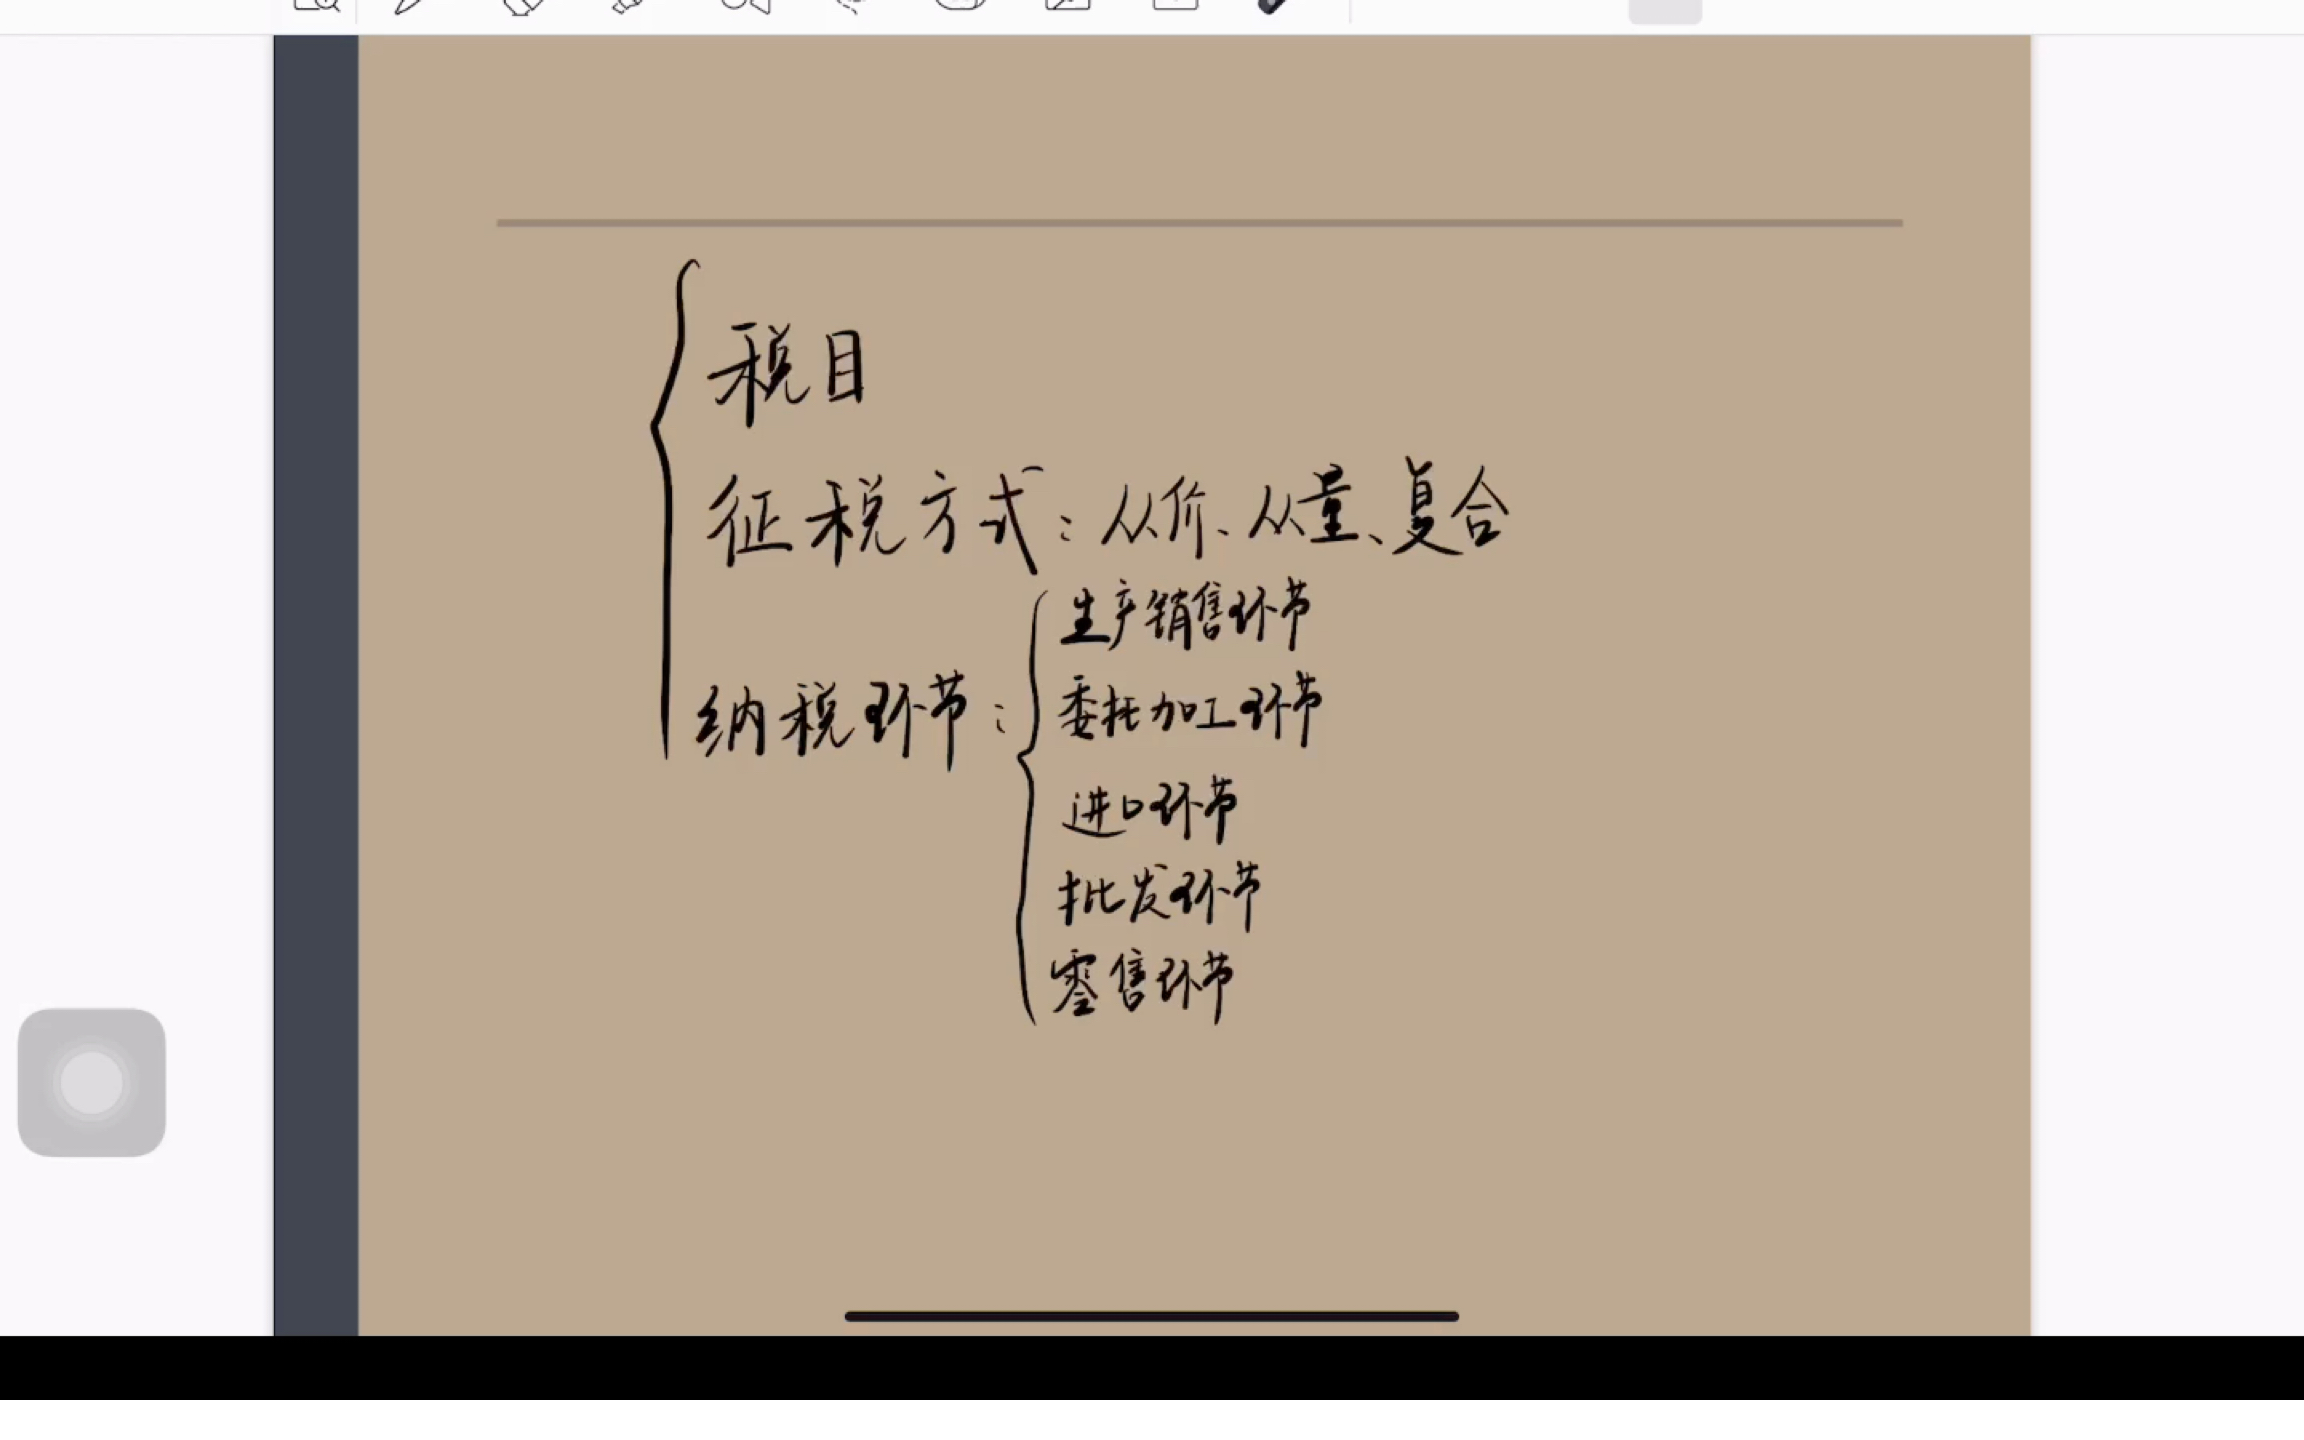 税目
征税方式：从价、从量、复合
生产销售环节
委托加工环节
纳税环节：
进口环节
批发环节
零售环节